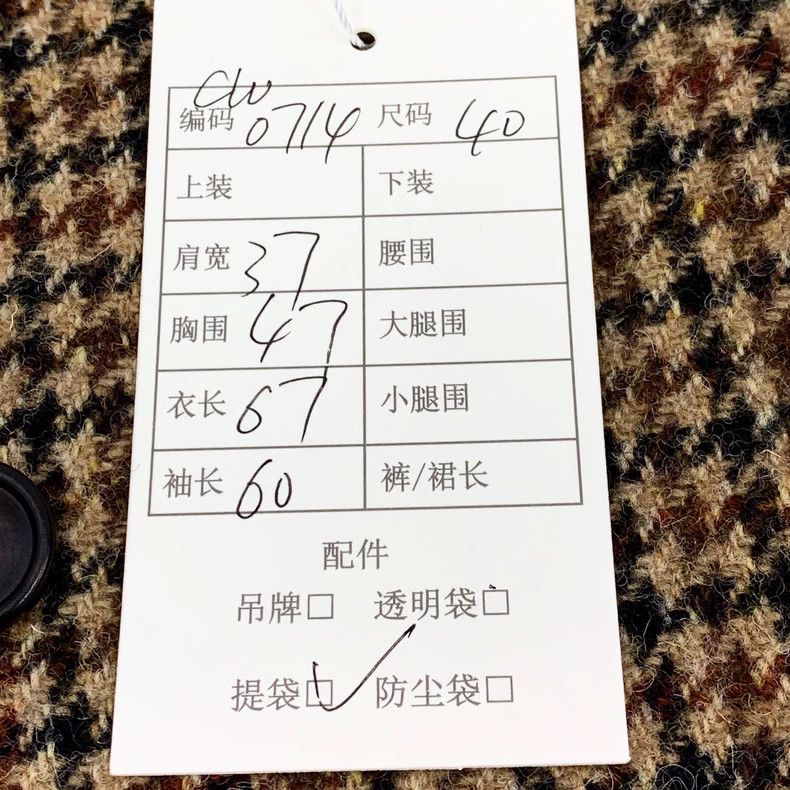 CW
编码 0714 尺码 40
上装 下装
肩宽 37 腰围
胸围 47 大腿围
衣长 67 小腿围
袖长 60 裤/裙长
配件
吊牌□ 透明袋□
提袋□ 防尘袋□